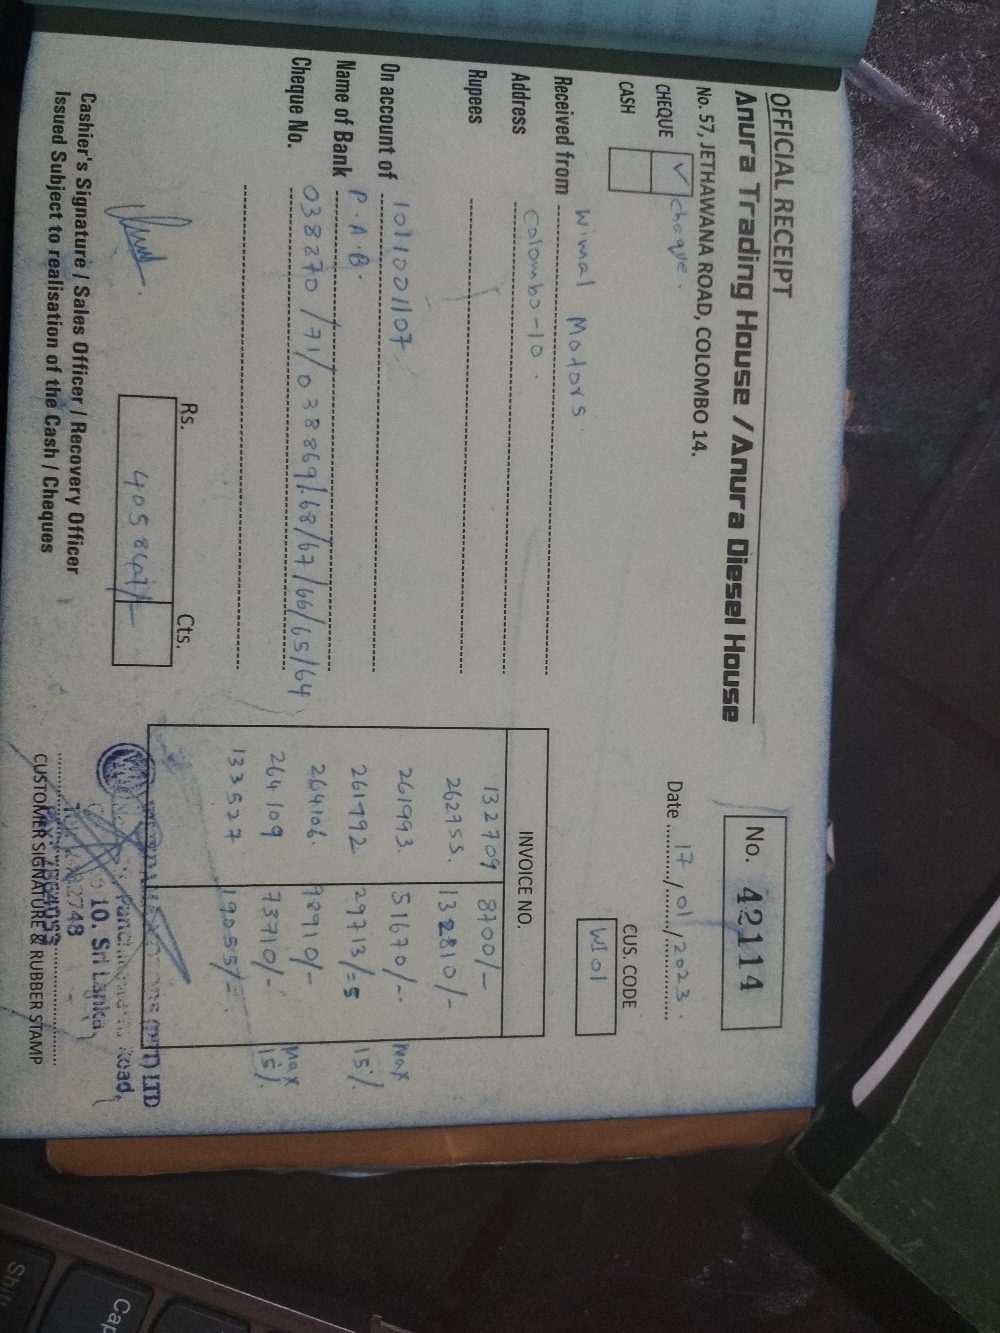 OFFICIAL RECEIPT
Anura Trading House / Anura Diesel House
No. 57, JETHAWANA ROAD, COLOMBO 14.
No. 42114
CHEQUE ✓ cheque.
CASH
Date 17/01/2023.
CUS. CODE
W101
Received from Wimal Motors.
Address Colombo-10.
Rupees
On account of 1011001107
Name of Bank P.A.B.
Cheque No. 038870/71/038869/68/67/66/65/64
INVOICE NO.
132709 8700/-
262755. 132810/-
261993. 51670/- Max
261992 29713/=5 15%
264106. 98910/- Max
264109 73710/- 15%
133527 19055/-
Rs. Cts.
(PVT) LTD
Road,
10. Sri Lanka
Cashier's Signature / Sales Officer / Recovery Officer
Issued Subject to realisation of the Cash / Cheques
CUSTOMER SIGNATURE & RUBBER STAMP
Shift